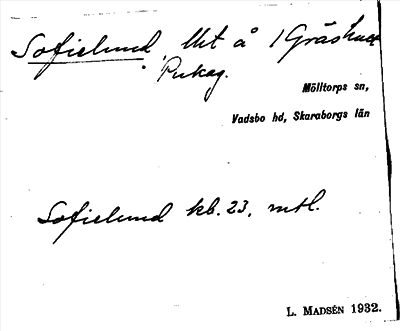 Sofielund, lht å 1 Gräshult
Pukag.
Mölltorps sn,
Vadsbo hd, Skaraborgs län
Sofielund kb. 23. mtl.
L. MADSÉN 1932.